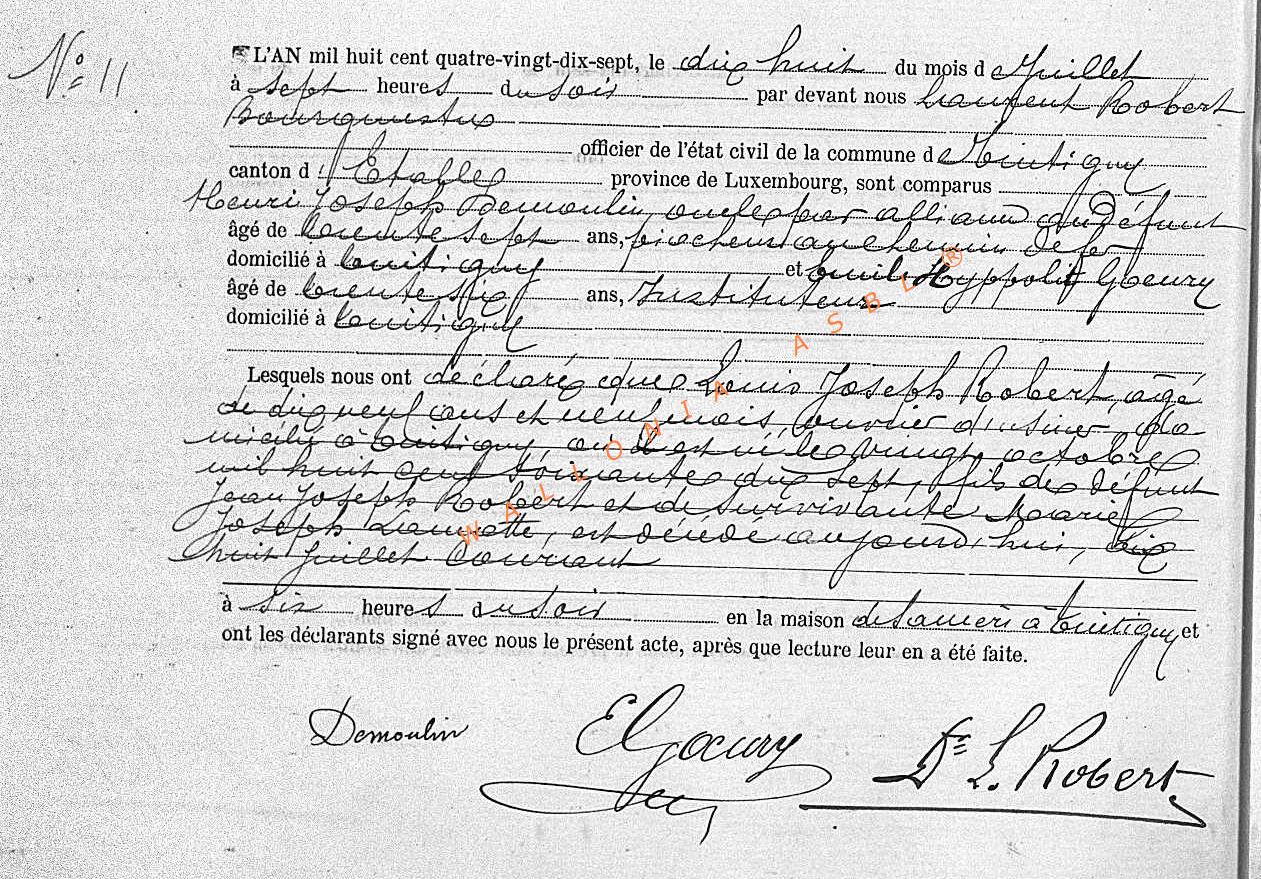 N° 11
L'AN mil huit cent quatre-vingt-dix-sept, le dix huit du mois d e Juillet
à sept heures du soir par devant nous Laurent Robert
Bourgmestre
officier de l'état civil de la commune d e Tintigny
canton d' Etalle province de Luxembourg, sont comparus
Henri Joseph Demoulin, oncle par alliance du défunt
âgé de trente sept ans, piocheur au chemin de fer
domicilié à Tintigny et Emile Hyppolite Goeury
âgé de trente six ans, Instituteur
domicilié à Tintigny
Lesquels nous ont déclaré que Louis Joseph Robert, âgé
de dix neuf ans et neuf mois, ouvrier d'usine, do
micilié à Tintigny, où il est né le vingt octobre
mil huit cent soixante dix sept, fils de défunt
Jean Joseph Robert et de survivante Marie
Joseph, est décédé aujourd'hui, dix
huit Juillet courant
à six heures du soir en la maison de sa mère à Tintigny et
ont les déclarants signé avec nous le présent acte, après que lecture leur en a été faite.
Demoulin EGoeury Dr L. Robert
WALLONIA ASBL ®